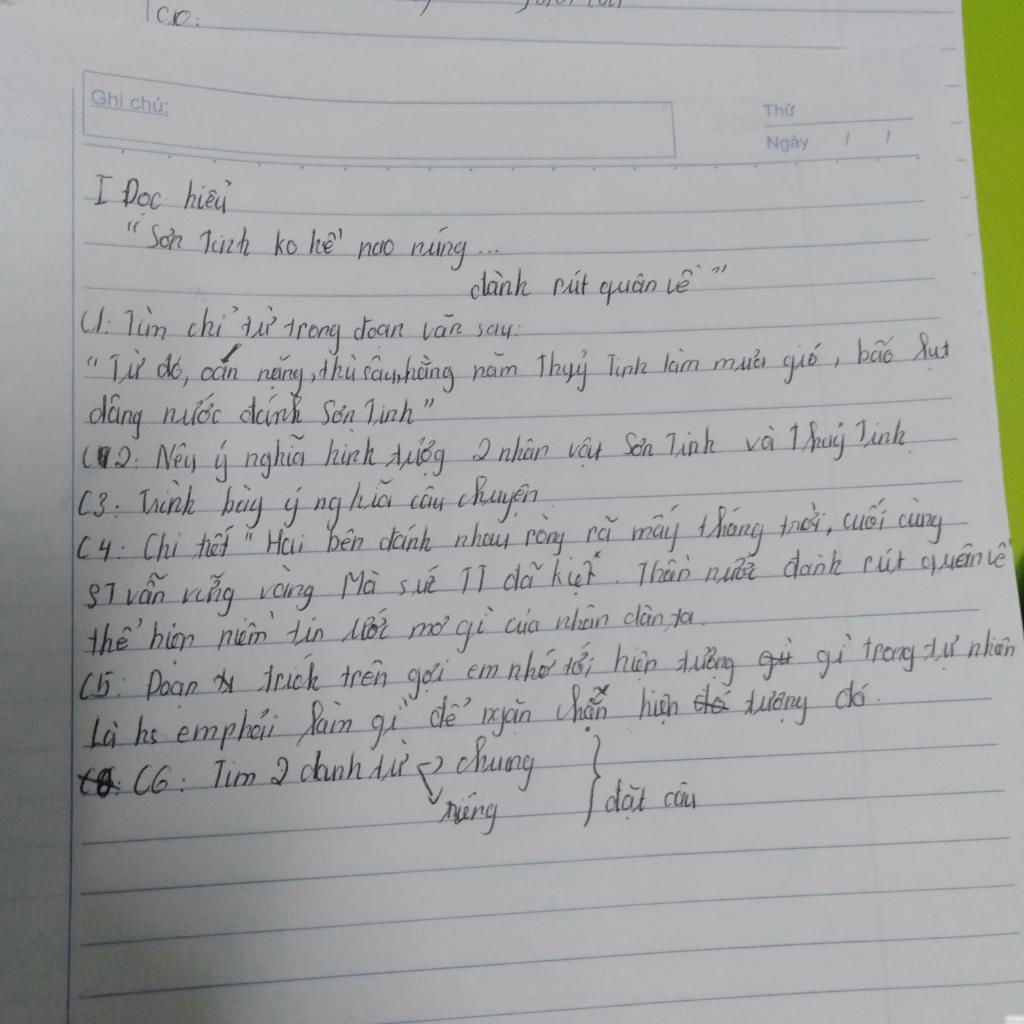 CD:
Ghi chú:
Thứ
Ngày / /
I Đọc hiểu
"Sơn Tinh ko hề nao núng...
dành rút quân về"
C1: Tìm chỉ từ trong đoạn văn sau:
"Từ đó, oán nặng, thù sâu, hằng năm Thuỷ Tinh làm mưa gió, bão lụt
dâng nước đánh Sơn Tinh"
C2: Nêu ý nghĩa hình tượng 2 nhân vật Sơn Tinh và Thuỷ Tinh
C3: Trình bày ý nghĩa câu chuyện
C4: Chi tiết "Hai bên đánh nhau ròng rã mấy tháng trời, cuối cùng
ST vẫn vững vàng Mà sức TT đã kiệt. Thần nước đành rút quân về
thể hiện niềm tin ước mơ gì của nhân dân ta.
C5: Đoạn trích trên gợi em nhớ tới hiện tượng gì trong tự nhiên
Là hs em phải làm gì để ngăn chặn hiện tượng đó.
C6: Tìm 2 danh từ chung
riêng
đặt câu